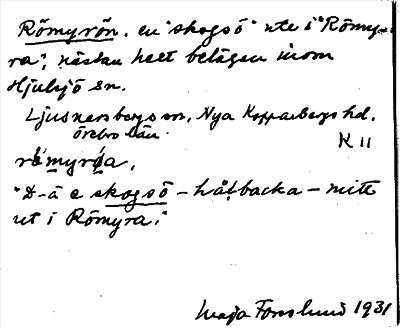 Römyrön, en "skogsö" ute i "Römy-
ra", nästan helt belägen inom
Hjulsjö sn.
Ljusnarsbergs sn, Nya Kopparbergs hd.
Örebro län.
K 11
"D-ä e skogsö – hålbacka – mitt
ut i Römyra."
Maja Forsslund 1931